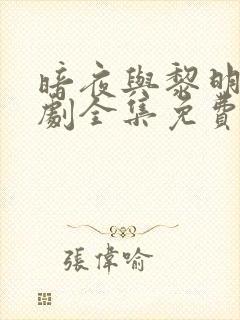 暗夜與黎明
劇全集免費
張偉喻